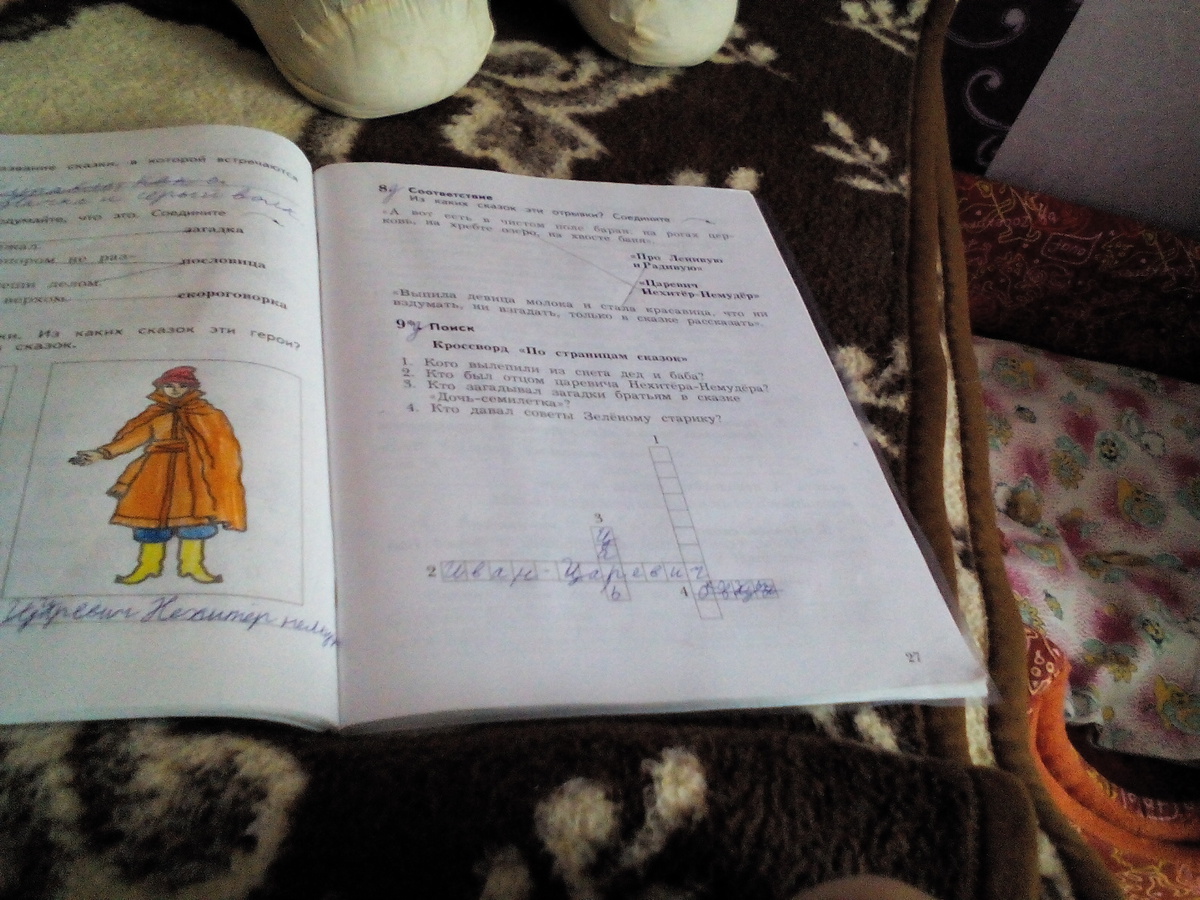 название сказки, в которой встречаются
и серый волк
одумайте, что это. Соедините
загадка
ежал.
опором не раз-
пословица
еши делом.
верхом.
скороговорка
ки. Из каких сказок эти герои?
сказок.
Царевич Нехитер немуд
8 Соответствие
Из каких сказок эти отрывки? Соедините
«А вот есть в чистом поле баран: на рогах цер-
ковь, на хребте озеро, на хвосте баня».
«Про Ленивую
и Радивую»
«Царевич
Нехитёр-Немудёр»
«Выпила девица молока и стала красавица, что ни
вздумать, ни взгадать, только в сказке рассказать».
9 Поиск
Кроссворд «По страницам сказок»
1. Кого вылепили из снега дед и баба?
2. Кто был отцом царевича Нехитёра-Немудёра?
3. Кто загадывал загадки братьям в сказке
«Дочь-семилетка»?
4. Кто давал советы Зелёному старику?
1
3
ц
а
2 Иван-Царевич
ь
4
27